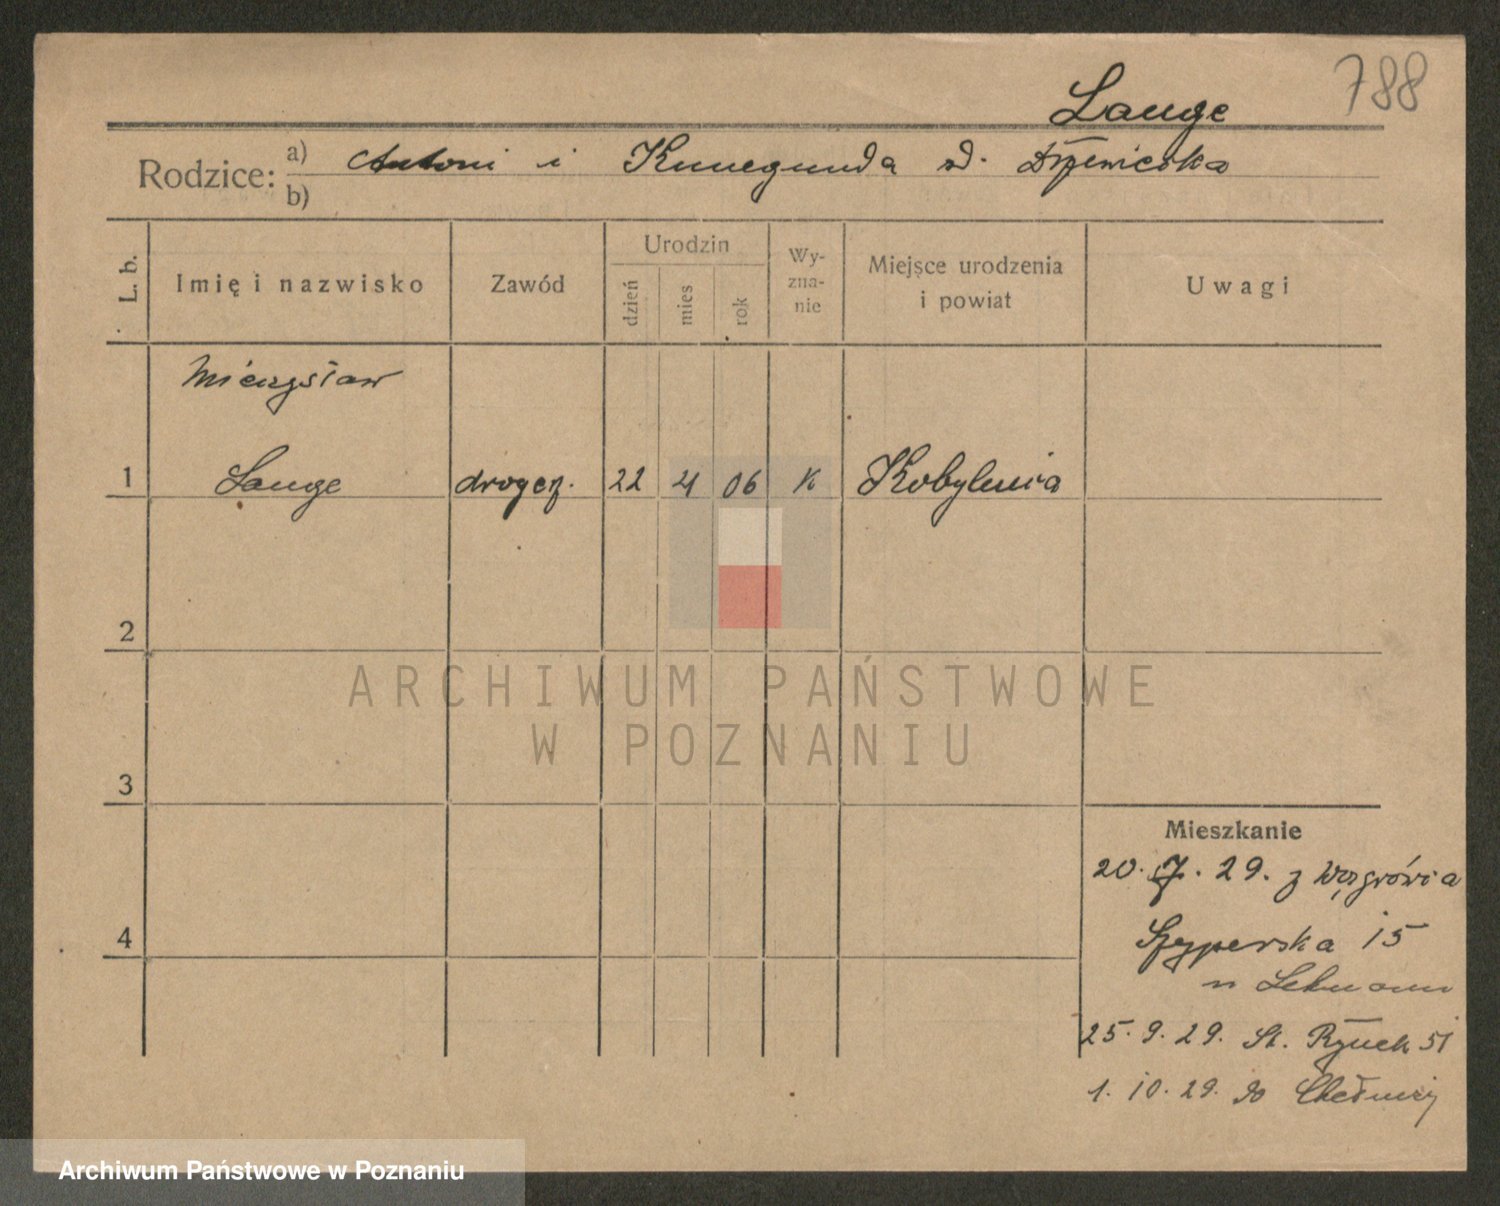 788
Lange
Rodzice: a) Antoni i Kunegunda zd. Drzewiecka
b)
L. b. Imię i nazwisko Zawód Urodzin dzień mies rok Wyznanie Miejsce urodzenia i powiat Uwagi
Mieczysław
1 Lange drogerz. 22 4 06 K Kobylnica
2
3
4
Mieszkanie
20. 7. 29. z Wągrówca
Szyperska 15
u Lehmann
25. 9. 29. St. Rynek 51
1. 10. 29. do
ARCHIWUM PAŃSTWOWE
W POZNANIU
Archiwum Państwowe w Poznaniu